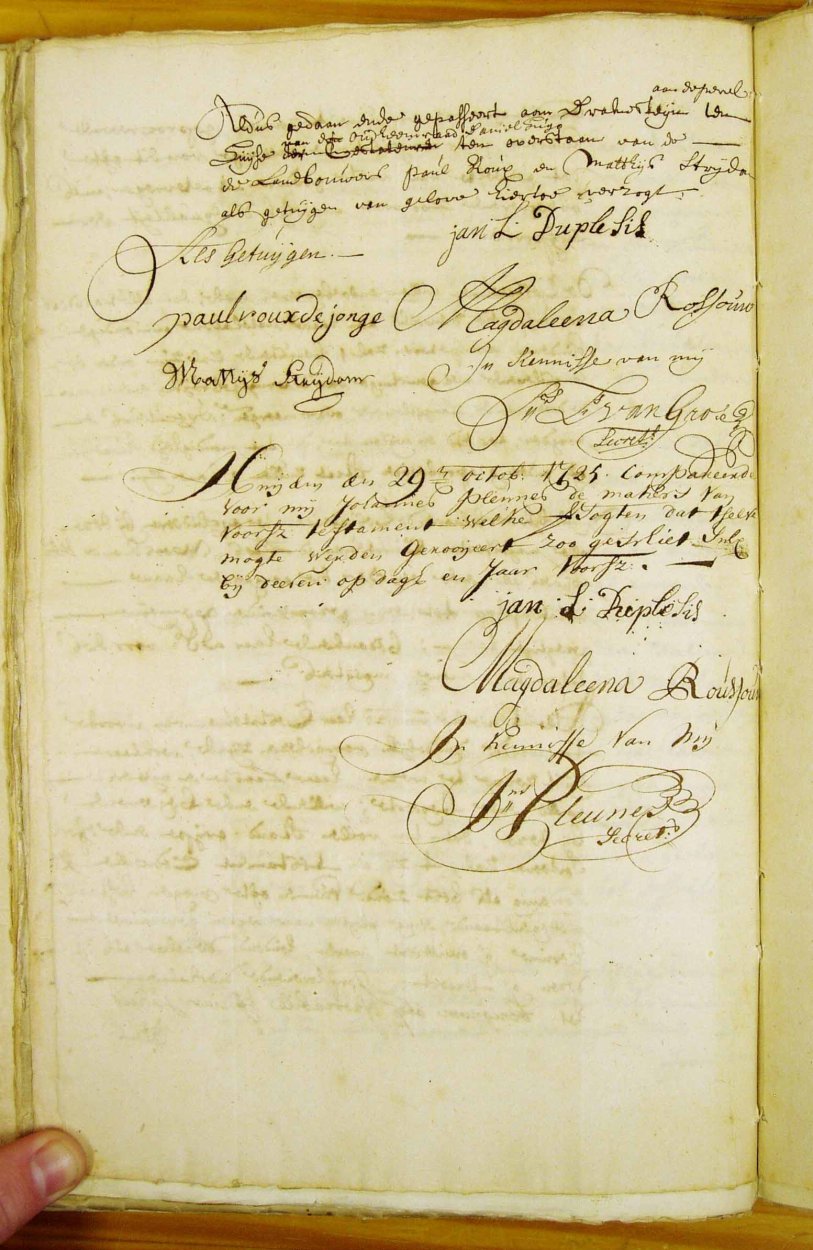 aan de peerel
Aldus gedaan ende gepasseert aan Drakesteijn ten
van den oud heemraad Daniel Hugo
Huijse ten overstaan van de
de Landbouwers Paul Roux en Matthijs Strijdom
als getuijgen van gelove hiertoe verzogt.
jan L Duplesis
Als Getuijgen.
paul roux de jonge Magdaleena Rossouw
Mattijs Strijdom In Kennisse van mij
Jns L van Groe
Secrets
Huijden den 29n octob: 1725. Compareerde
voor mij Johannes Pleunes de maters van
voorsz testament welke versogten dat t selve
mogte werden Gerooijeert zoo geschiet
bij deesen op dage en Jaar voorsz:
jan L Duplesis
Magdaleena Rousouw
In Kennisse Van Mij
Jns Pleunes
Secrets